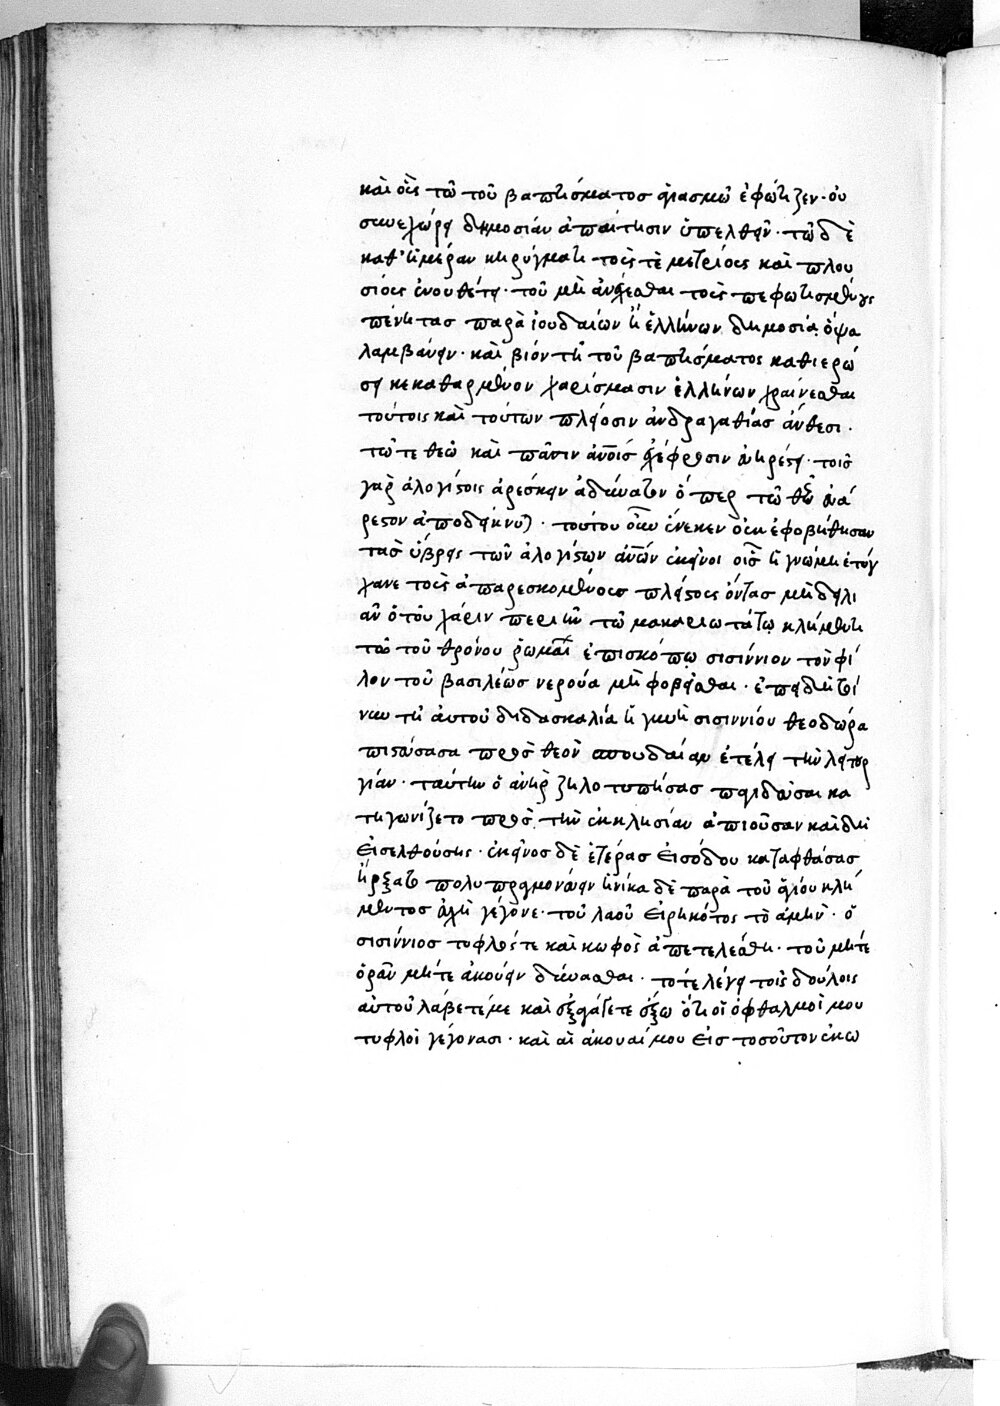 καὶ οὓς τῶ τοῦ βαπτίσματος ἁγιασμῶ ἐφώτιζεν· οὐ
συνεχώρει δημοσίαν ἀπαίτησιν ὑπελθεῖν· τῶ δὲ
καθ' ἡμέραν κηρύγματι τοὺς τὲ μετρίους καὶ πλου
σίους ἐνουθέτει· τοῦ μὴ ἀνέχεσθαι τοὺς πεφωτισμένους
πένητας παρὰ ἰουδαίων ἢ ἑλλήνων δημοσία ὀψα
λαμβάνειν· καὶ βίον τῆ τοῦ βαπτίσματος καθιερώ
σει κεκαθαρμένον χαρίσμασιν ἑλλήνων χραίνεσθαι
τούτοις καὶ τούτων πλείοσιν ἀνδραγαθίας ἄνθεσι·
τῶ τε θεῶ καὶ πᾶσιν ἀνοις ἐχέφροσιν εὐηρέστει· τοῖς
γὰρ ἀλογίστοις ἀρέσκειν ἀδύνατον ὅπερ τῶ θῶ εὐά
ρεστον ἀποδείκνυται· τούτου οὖν ἕνεκεν οὐκ ἐφοβήθησαν
τὰς ὕβρεις τῶν ἀλογίστων ἀνων ἐκεῖνοι οἷς ἡ γνώμη ἐτύγ
χανε τοὺς ἀπαρεσκομένους πλείστους ὄντας μὴ δειλι
ᾶν ὅτου χάριν περιῆν τῶ μακαριωτάτω κλήμεντι
τῶ τοῦ θρόνου ῥωμαί ἐπισκόπω σισίννιον τὸν φί
λον τοῦ βασιλέως νερούα μὴ φοβεῖσθαι· ἐπειδὴ τοί
νυν τῆ αὐτοῦ διδασκαλία ἡ γυνὴ σισιννίου θεοδώρα
πιστεύσασα πρὸς θεὸν σπουδαίαν ἐτέλει τὴν λειτουρ
γίαν· ταύτην ὁ ἀνὴρ ζηλοτυπήσας παγιδεῦσαι κα
τηγωνίζετο πρὸς τὴν ἐκκλησίαν ἀπιοῦσαν καὶ δὴ
εἰσελθούσης· ἐκεῖνος δὲ ἑτέρας εἰσόδου καταφθάσας
ἤρξατο πολυπραγμονεύειν ἡνίκα δὲ παρὰ τοῦ ἁγίου κλή
μεντος εὐχὴ γέγονε· τοῦ λαοῦ εἰρηκότος τὸ ἀμήν· ὁ
σισίννιος τυφλός τε καὶ κωφὸς ἀπετελέσθη· τοῦ μήτε
ὁρᾶν μήτε ἀκούειν δύνασθαι· τότε λέγει τοῖς δούλοις
αὐτοῦ λάβετέ με καὶ ἐξαγάγετε ἔξω ὅτι οἱ ὀφθαλμοί μου
τυφλοὶ γεγόνασι· καὶ αἱ ἀκοναί μου εἰς τοσοῦτον ἐκω